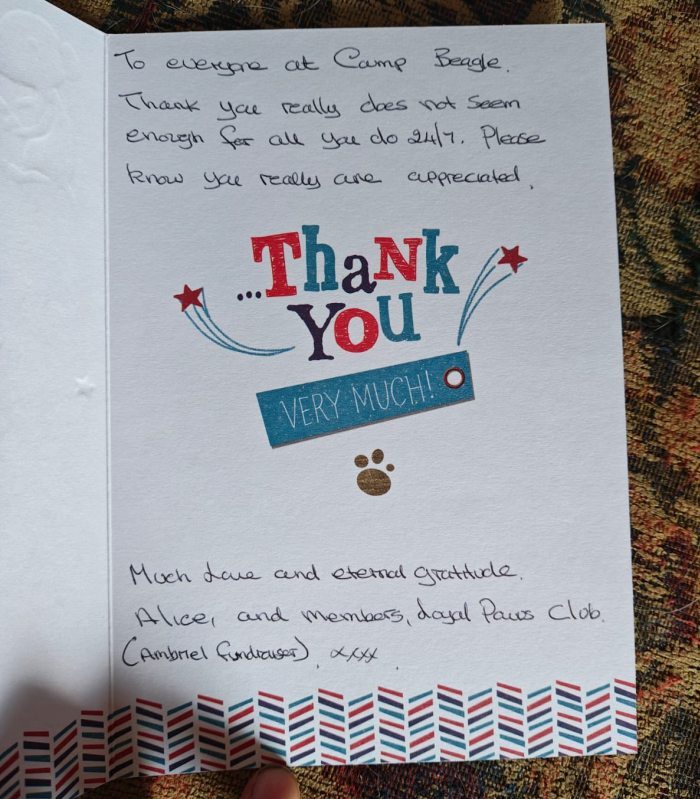 To everyone at Camp Beagle.
Thank you really does not seem
enough for all you do 24/7. Please
know you really are appreciated.
...Thank
You
VERY MUCH!
Much Love and eternal gratitude.
Alice, and members, Loyal Paws Club.
(Ambriel fundraiser). xxxx.